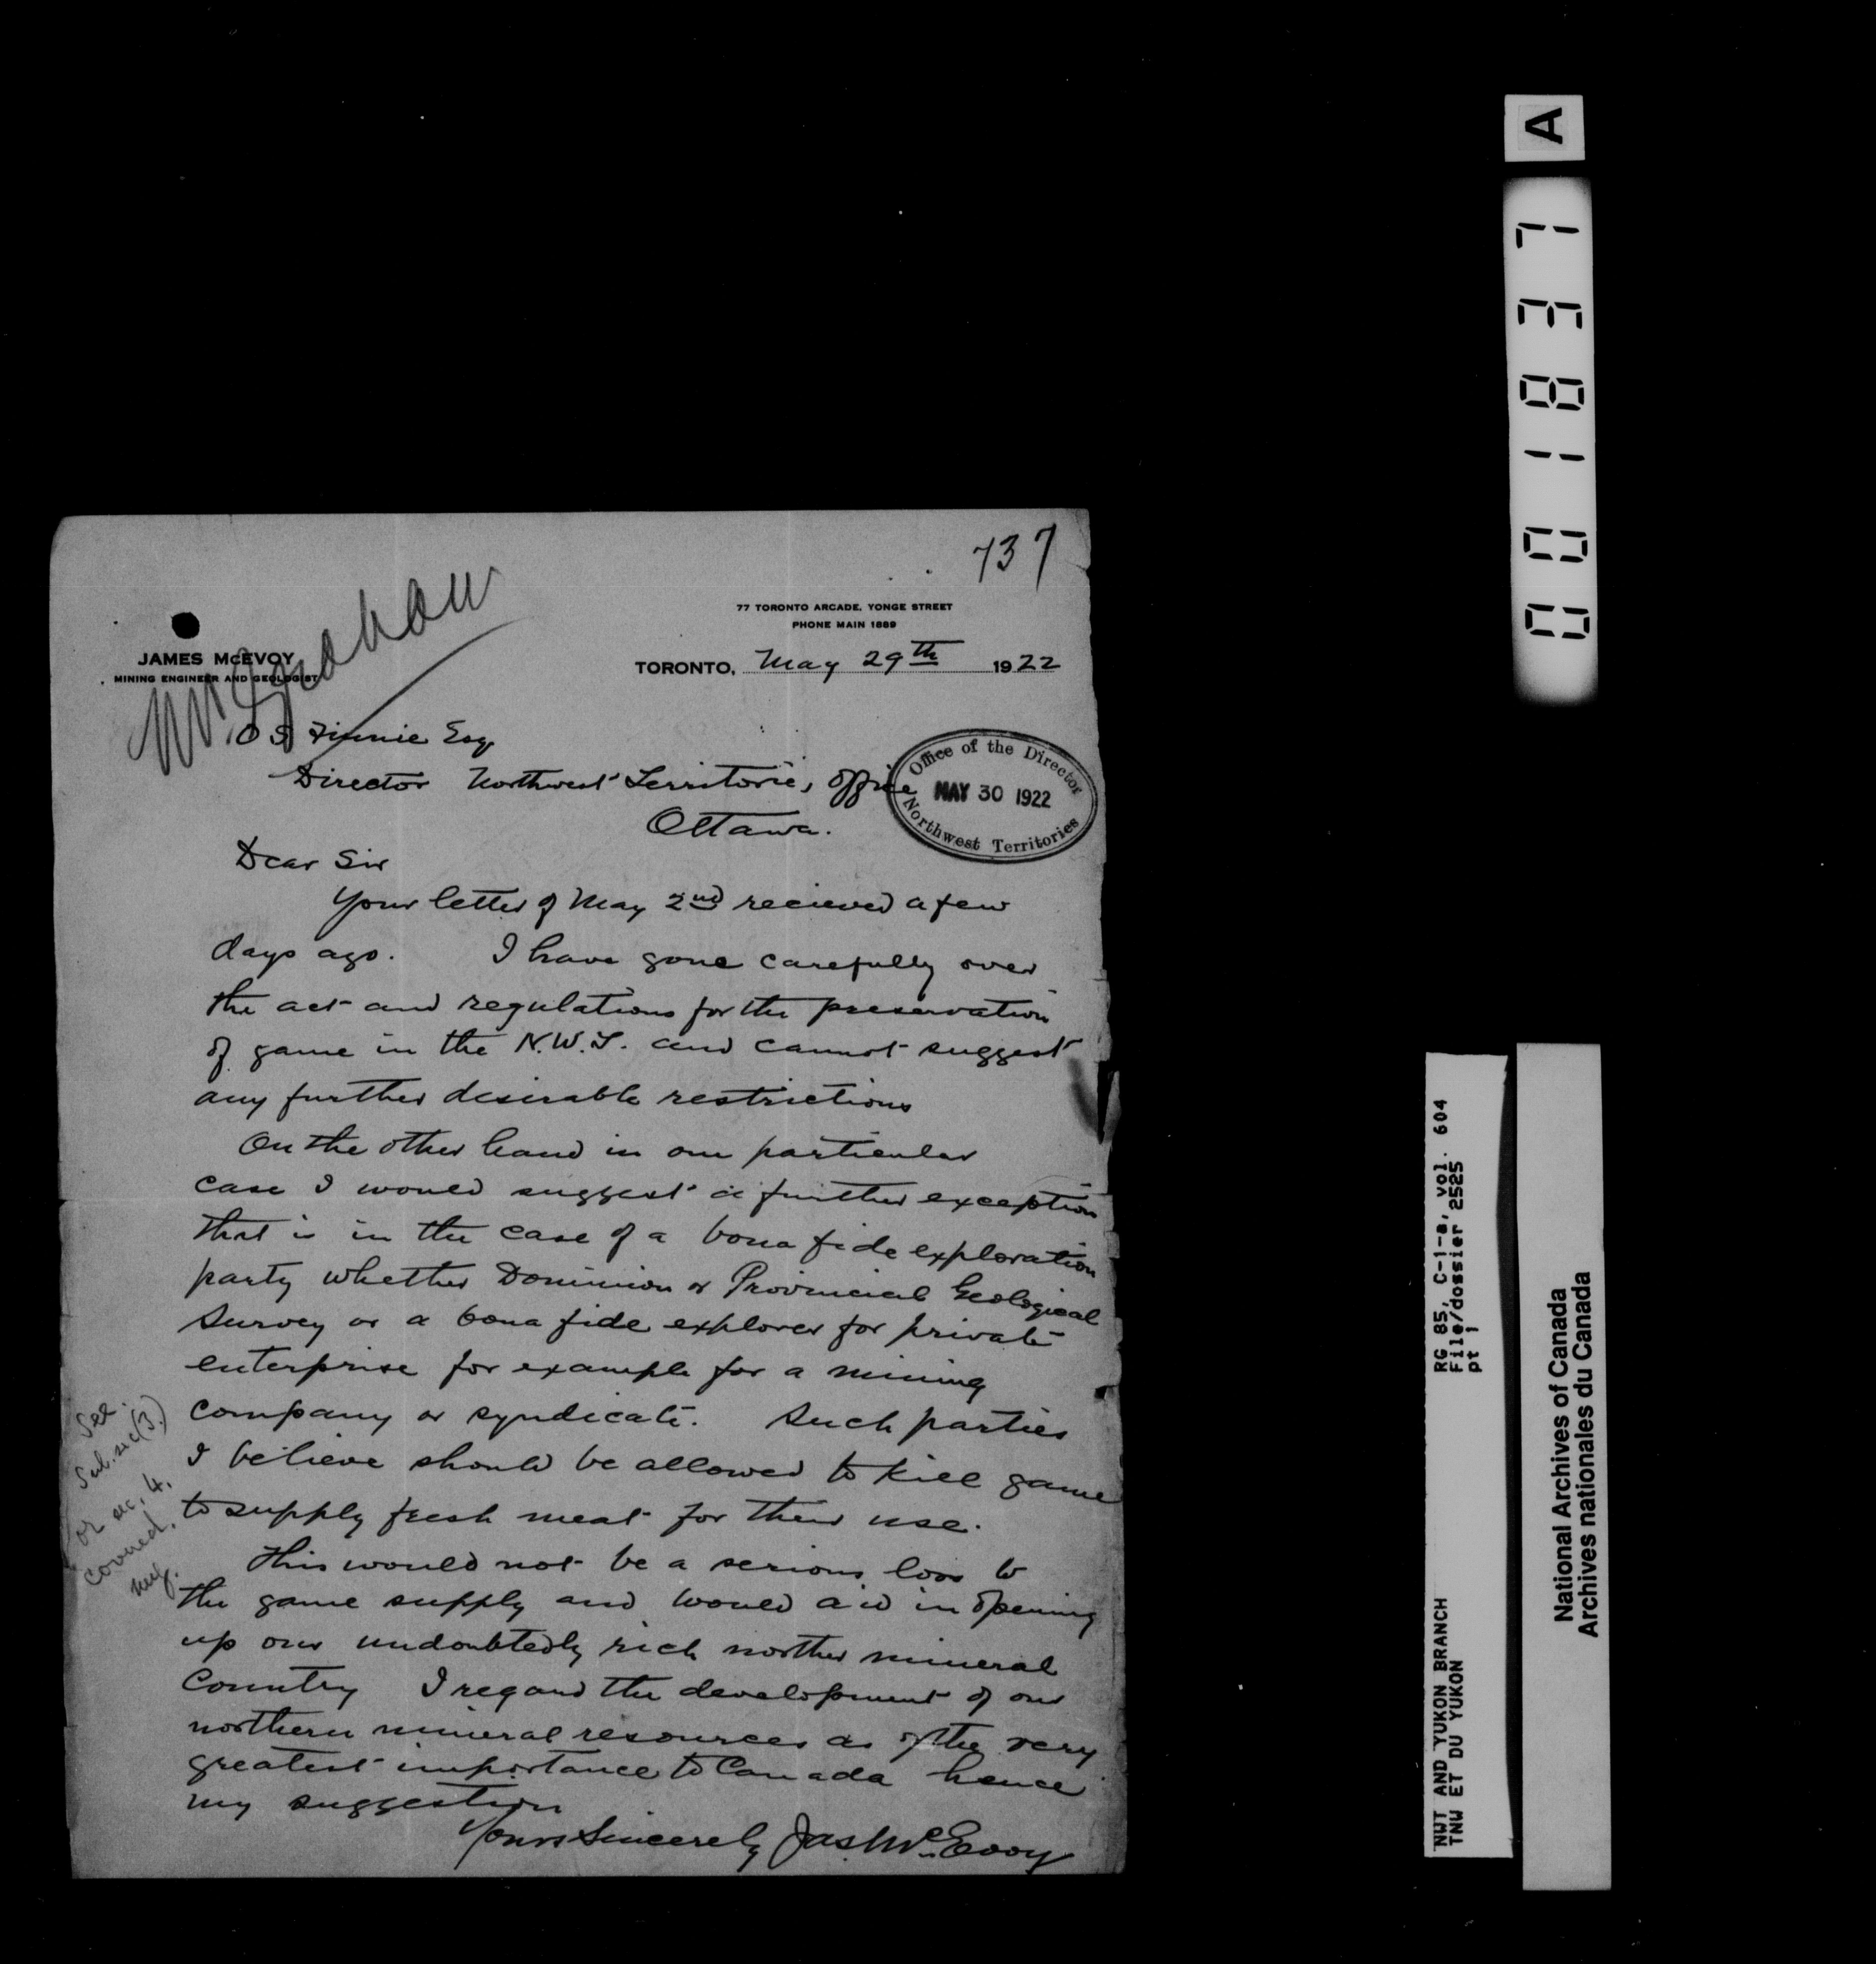 737
77 TORONTO ARCADE, YONGE STREET
PHONE MAIN 1889
JAMES McEVOY
MINING ENGINEER AND GEOLOGIST
TORONTO, May 29th 1922
O S Finnie Esq
Director Northwest Territories Office
Ottawa.
Office of the Director
MAY 30 1922
Northwest Territories
Dear Sir
Your letter of May 2nd recieved a few
days ago. I have gone carefully over
the act and regulations for the preservation
of game in the N.W.T. and cannot suggest
any further desirable restrictions
On the other hand in one particular
case I would suggest a further exception
that is in the case of a bona fide exploration
party whether Dominion or Provincial Geological
Survey or a bona fide explorer for private
enterprise for example for a mining
company or syndicate. Such parties
I believe should be allowed to kill game
to supply fresh meat for their use.
This would not be a serious loss to
the game supply and would aid in opening
up our undoubtedly rich norther mineral
Country I regard the development of our
northern mineral resources as of the very
greatest importance to Canada hence
my suggestion
Yours Sincerely Jas McEvoy
See
Sub.sec(3)
of sec. 4.
covered.
A
001837
RG 85, C-1-a, vol. 604
File/dossier 2525
pt 1
NWT AND YUKON BRANCH
TNW ET DU YUKON
National Archives of Canada
Archives nationales du Canada